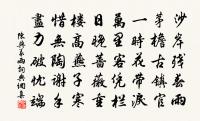 沙岸殘春雨
茅檐古鎮官
一時花帶淚
萬里客凭欄
日晚薔薇重
樓高燕子寒
惜無陶謝手
盡力破忧端
陳與義雨詞典網